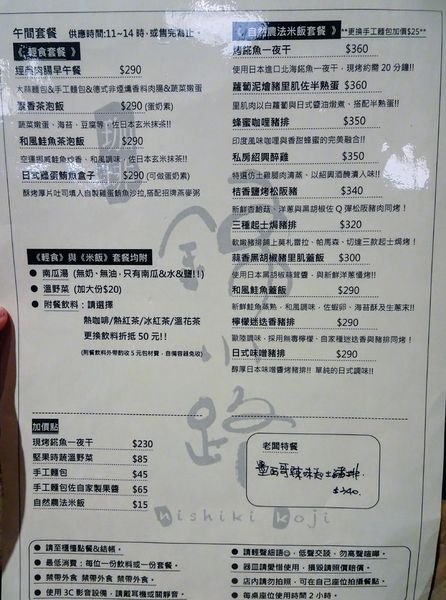 午間套餐 供應時間:11~14時,或售完為止。
《 輕食套餐 》
經典肉腸早午餐 $290
大蒜麵包&手工麵包&德式非煙燻香料肉腸&蔬菜嫩蛋
聚香茶泡飯 $290 (蛋奶素)
蔬菜嫩蛋、海苔、豆腐等,佐日本玄米抹茶!!
和風鮭魚茶泡飯 $290
空運挪威鮭魚炒香、和風調味,佐日本玄米抹茶!!
日式燻蛋鮪魚盒子 $290 (可做蛋奶素)
酥烤厚片吐司填入自製雞蛋鮪魚沙拉,搭配招牌燕麥粥
《輕食》與《米飯》套餐均附
● 南瓜湯 (無奶、無油,只有南瓜&水&鹽!!)
● 溫野菜 (加大份$20)
● 附餐飲料:請選擇
熱咖啡/熱紅茶/冰紅茶/溫花茶
更換飲料折抵 50 元!!
(附餐飲料外帶酌收 5 元包材費,自備容器免收)
加價點
現烤鯡魚一夜干 $230
堅果時蔬溫野菜 $85
手工麵包 $45
手工麵包佐自家製果醬 $65
自然農法米飯 $15
《 自然農法米飯套餐 》 **更換手工麵包加價$25**
烤鯡魚一夜干 $360
使用日本進口北海鯡魚一夜干,現烤約需 20 分鐘!!
蘿蔔泥燴豬里肌佐半熟蛋 $360
里肌肉以白蘿蔔與日式醬油燉煮、搭配半熟蛋!!
蜂蜜咖哩豬排 $350
印度風味咖哩與香甜蜂蜜的完美融合!!
私房紹興醉雞 $350
特選仿土雞腿肉清蒸、以紹興酒醃漬入味!!
桔香鹽烤松阪豬 $340
新鮮杏鮑菇、洋蔥與黑胡椒佐 Q 彈松阪豬肉同烤!
三種起士焗豬排 $320
軟嫩豬排鋪上莫札雷拉、帕馬森、切達三款起士焗烤!
蒜香黑胡椒豬里肌蓋飯 $300
使用日本黑胡椒蒜茸醬,與新鮮洋蔥慢烤!!
和風鮭魚蓋飯 $290
新鮮鮭魚蒸熟,和風調味,佐蝦卵、海苔酥及生蔥末!!
檸檬迷迭香豬排 $290
歐陸調味,採用無毒檸檬、自家種迷迭香與豬排同烤!
日式味噌豬排 $290
醇厚日本味噌醬烤豬排!! 單純的日式調味!!
老闆特餐
墨西哥辣味起士豬排.
$340.
錦小路
nishiki koji
● 請至櫃檯點餐&結帳。
● 最低消費:每位一份飲料或一份套餐。
● 禁帶外食 禁帶外食 禁帶外食。
● 使用 3C 影音設備,請戴耳機或關靜音。
● 請輕聲細語☺,低聲交談,勿高聲喧嘩。
● 器皿請愛惜使用,損毀請照價賠償。
● 店內請勿拍照,可在自己座位拍攝餐點
● 每桌座位使用時間 2 小時。